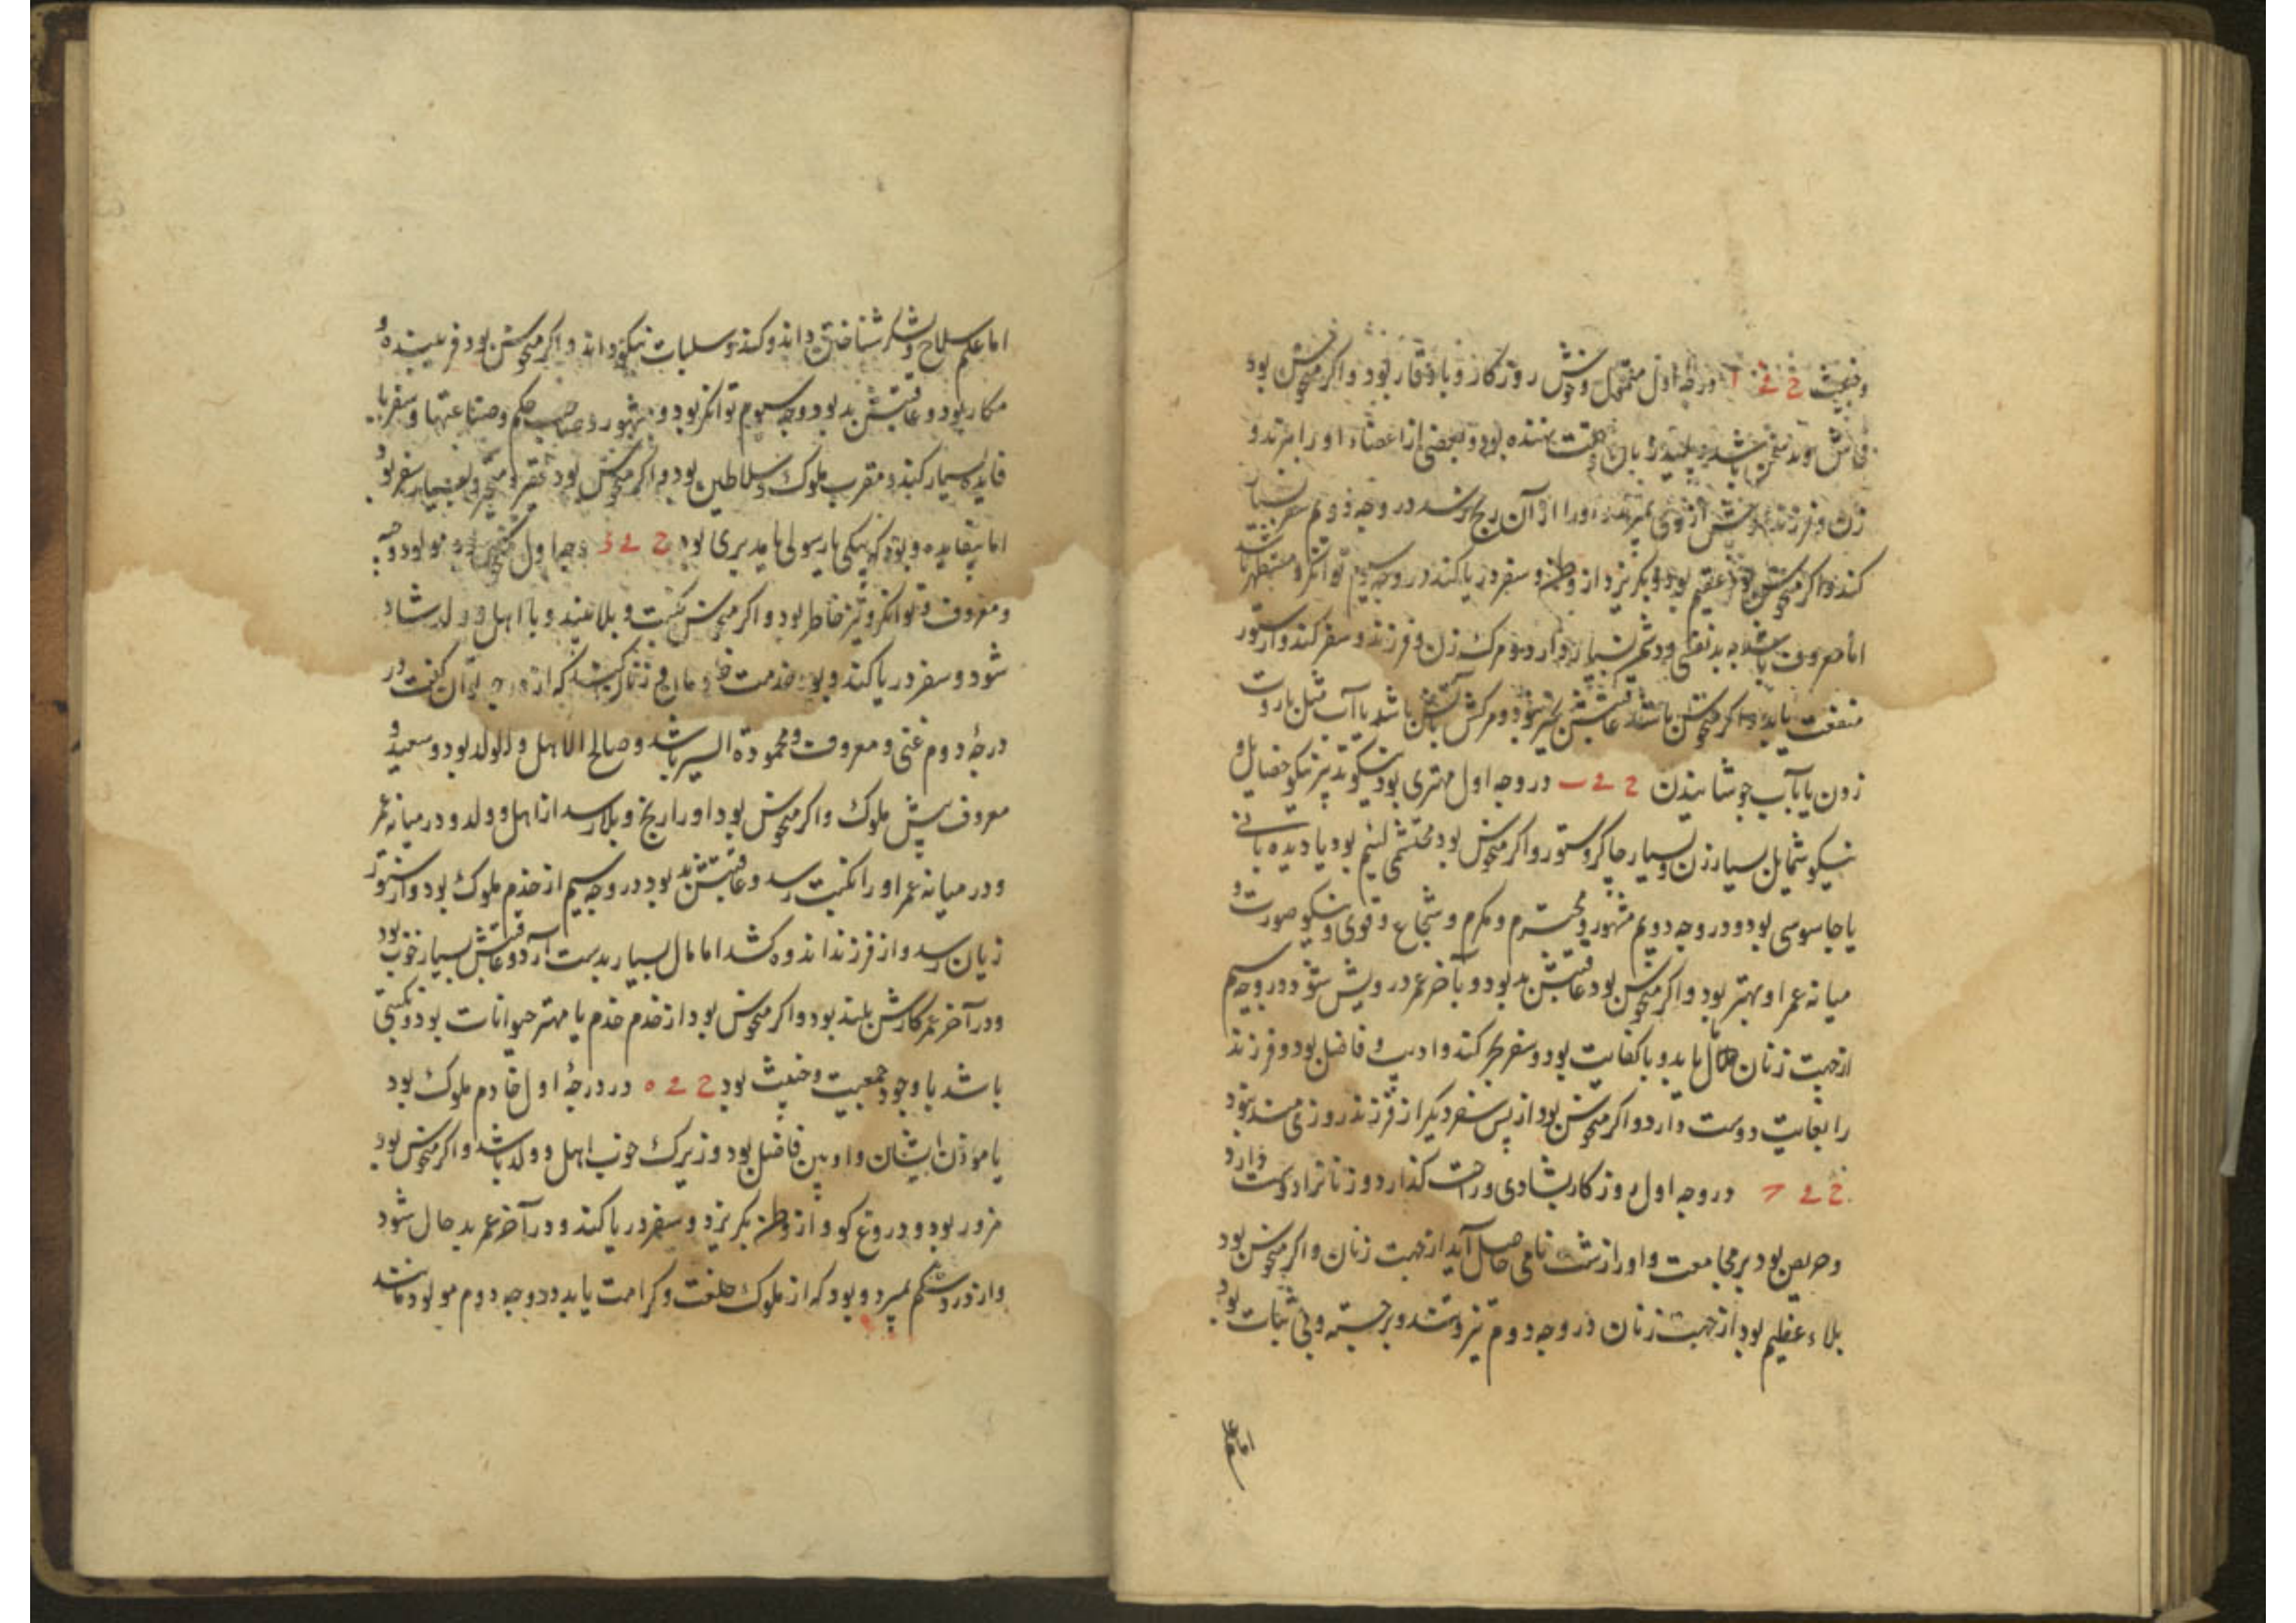 وخبیث ح ے ا در وجه اول متحمل وخوش روزکار وباوقار بود واکر منحوس بود
باشد وبعضی از اعضاء او را ببرند و
زن وفرزند از وی بمیرند و او را از آن رنج رسد در وجه دوم سفر بسیار
کند واکر منحوس بود عقیم بود وبکریزد از وطن وسفر دریا کند در وجه سیوم توانکر ومستظهر باشد
اما معروف باشد ببدنفسی ودشمن بسیار دارد ومرک زن وفرزند وسفر کند واز ستور
منفعت یابد واکر منحوس باشد عاقبتش بخیر نبود ومرکش بآتش باشد یا آب مثل باروت
زدن یا بآب جوشانیدن ح ے ب در وجه اول مهتری بود نیکو تدبیر نیکو خصایل و
نیکو شمایل بسیار زن وبسیار چاکر وستور واکر منحوس بود محتشمی لئیم بود یا دیده بانی
یا جاسوسی بود ودر وجه دویم مشهور ومحترم ومکرم وشجاع وقوی ونیکو صورت و
میانه عمر او بهتر بود واکر منحوس بود عاقبتش بد بود وبآخر عمر درویش شود ودر وجه سیم
از جهت زنان مال یابد وباکفایت بود وسفر بحر کند وادیب وفاضل بود وفرزند
را بغایت دوست دارد واکر منحوس بود از پس سفر دیکر از فرزند روزی مند شود
ح ے ج در وجه اول روزکار بشادی وراحت کذارد وزنانرا دوست دارد
وحریص بود بر مجامعت واو را زشت نامی حاصل آید از جهت زنان واکر منحوس بود
بلاء عظیم بود از جهت زنان در وجه دوم تیز وتند وبرجسته وبی ثبات بود
اما علم
اما علم سلاح ولشکر شناختن داند وکند وسلبات نیکو داند واکر منحوس بود فریبنده و
مکار بود وعاقبتش بد بود وجه سیوم توانکر بود ومشهور وصاحب حکم وصناعتها وسفر با
فایده بسیار کند ومقرب ملوک وسلاطین بود واکر منحوس بود فقیر ومتحیر وبسیار سفر بود
اما بیفایده وبود که پیکی یا رسولی یا مدبری بود ح ے د وجه اول مولود وجیه
ومعروف وتوانکر وتیز خاطر بود واکر منحوس نکبت وبلا بیند وبا اهل وولد شاد
شود وسفر دریا کند وبود خدمت
درجهٔ دوم غنی ومعروف ومحمودة السیر باشد وصالح الاهل والولد بود وسعید و
معروف پیش ملوک واکر منحوس بود او را رنج وبلا رسد از اهل وولد ودر میانه عمر
ودر میانه عمر او را نکبت رسد وعاقبتش بد بود در وجه سیم از خدم ملوک بود واز ستور
زیان رسد واز فرزند اندوه کشد اما مال بسیار بدست آرد وعاقبتش بسیار خوب بود
ودر آخر عمر کارش بلند بود واکر منحوس بود از خدم خدم یا مهتر حیوانات بود ونکبتی
باشد با وجود جمعیت وخبیث بود ح ے ه در درجهٔ اول خادم ملوک بود
یا موذن ایشان وادیبن فاضل بود وزیرک خوب اهل وولد باشد واکر منحوس بود
مزور بود ودروغ کو واز وطن بکریزد وسفر دریا کند ودر آخر عمر بد حال شود
واز درد شکم بمیرد وبود که از ملوک خلعت وکرامت یابد ودر وجه دوم مولود مانند